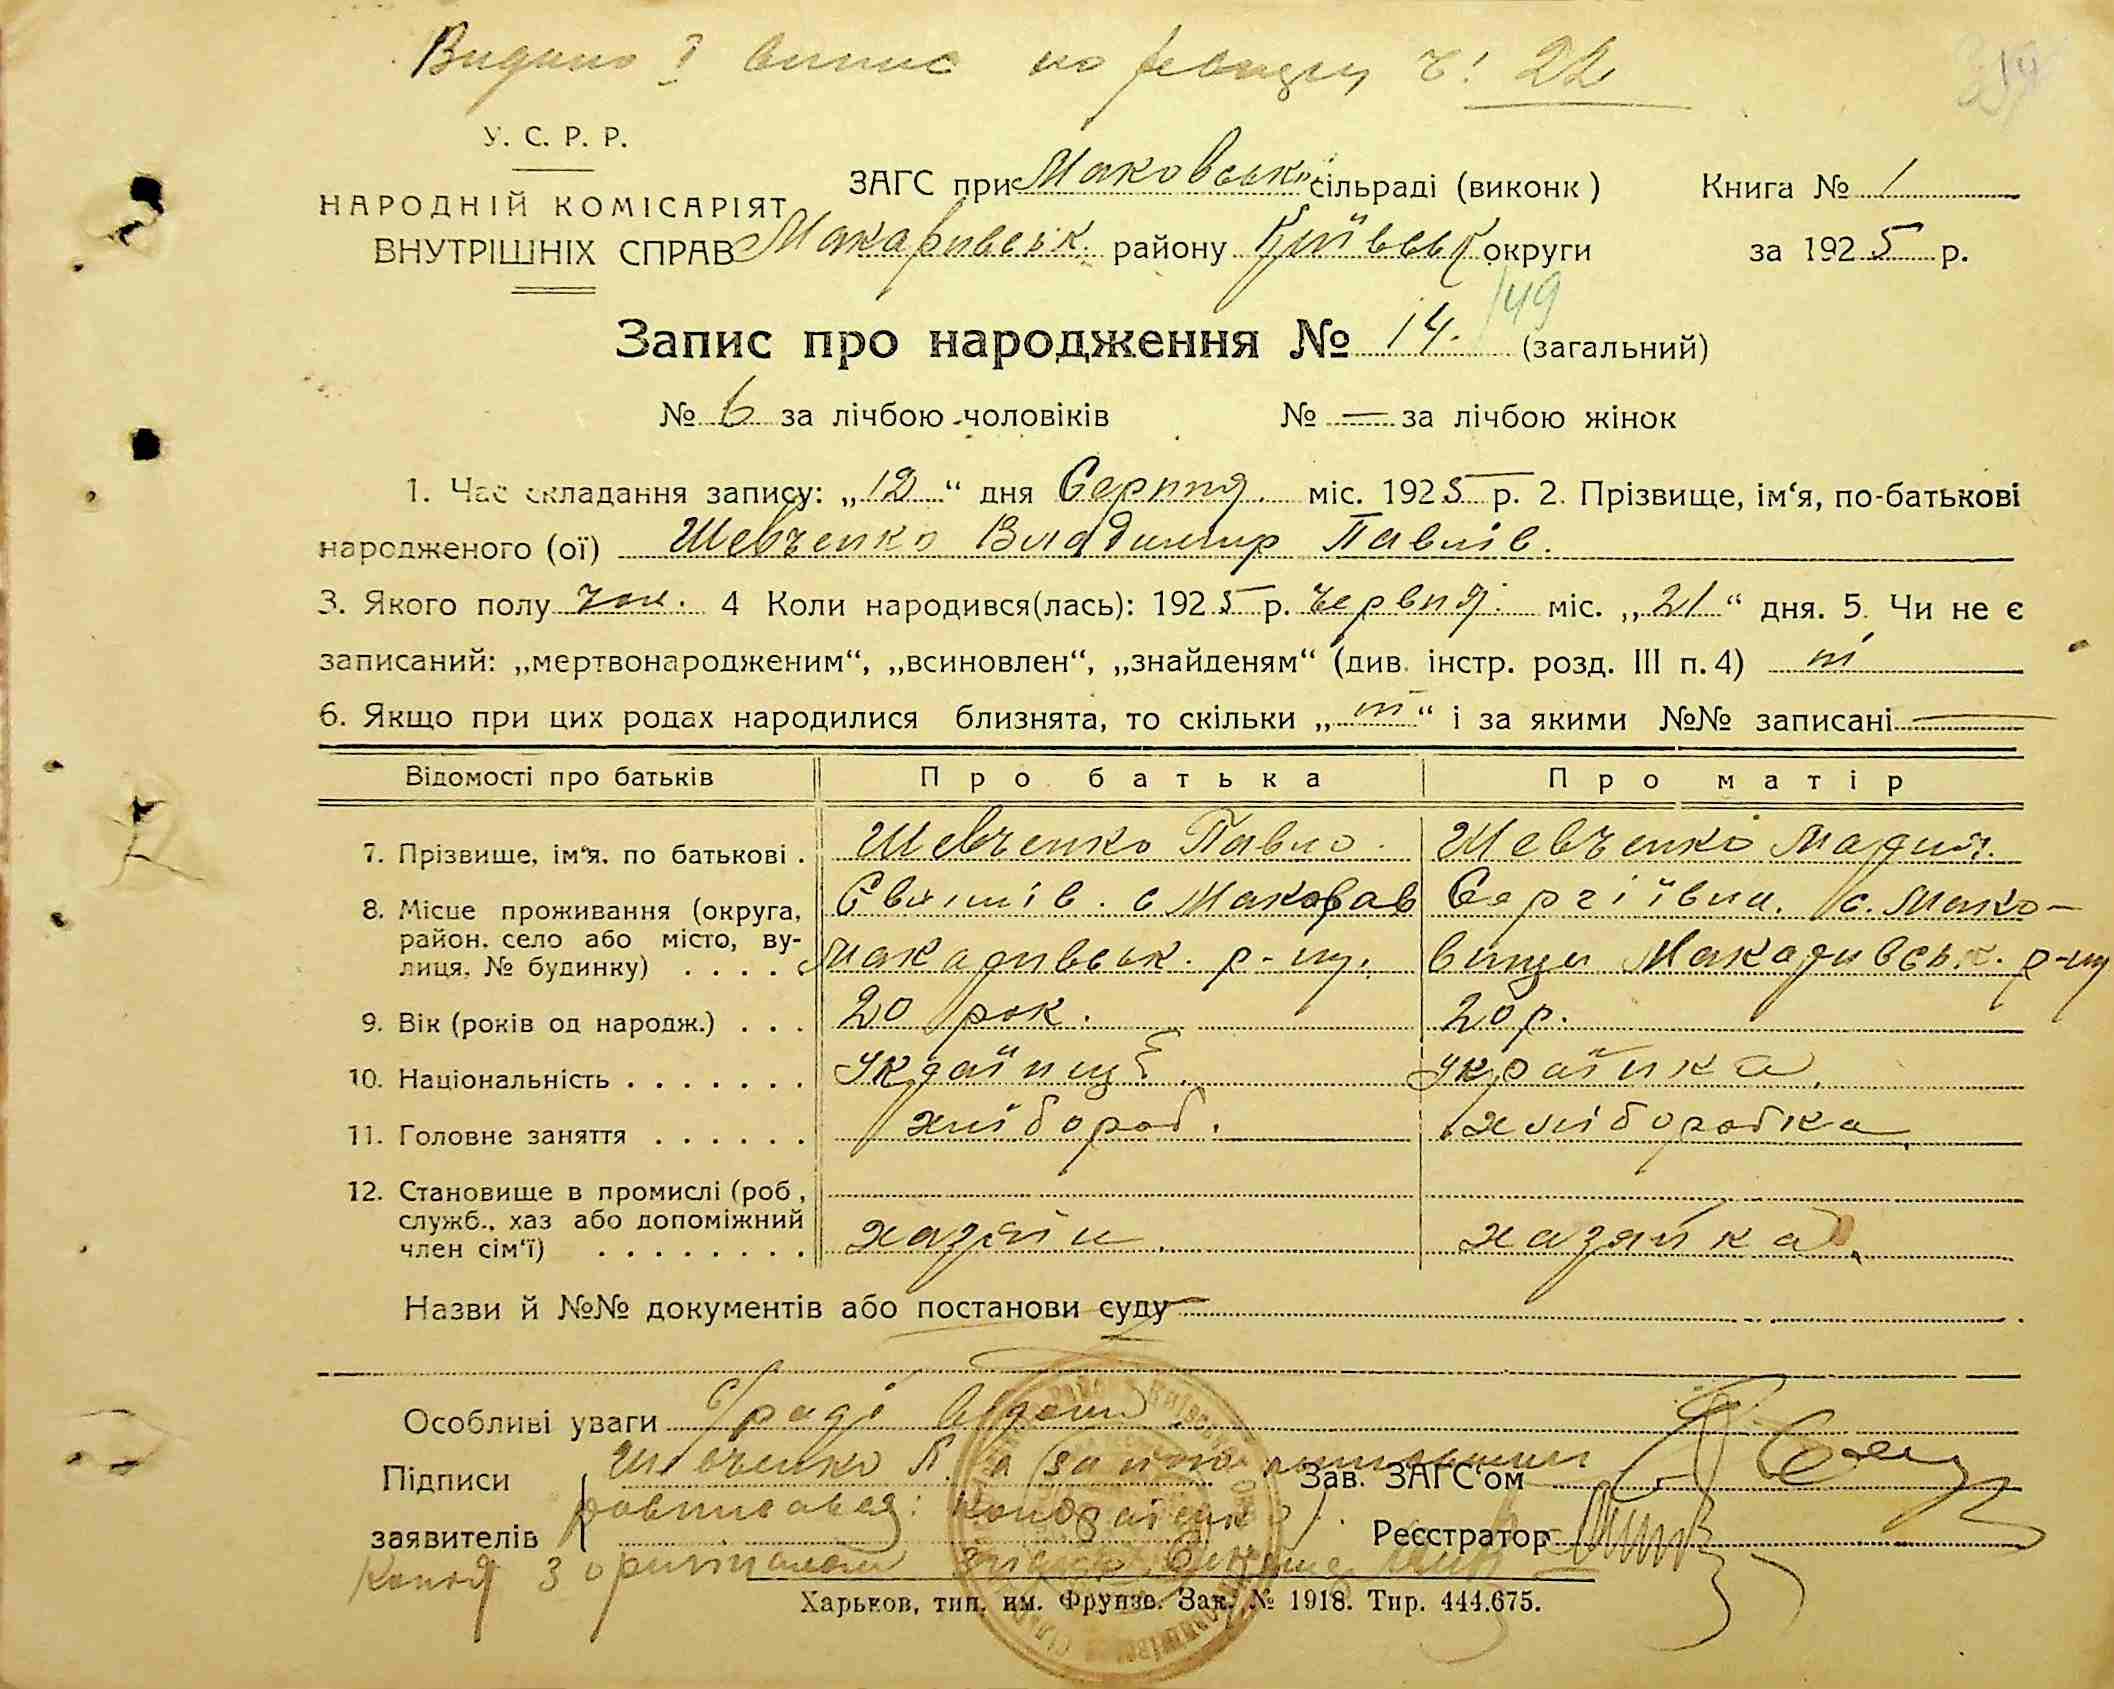 Видано випис ч. 22
У. С. Р. Р.
НАРОДНІЙ КОМІСАРІЯТ
ВНУТРІШНІХ СПРАВ
ЗАГС при Маковськ. сільраді (виконк)
Книга № 1
Макаривськ. району Київськ округи
за 1925 р.
149
Запис про народження № 14. (загальний)
№ 6 за лічбою чоловіків № — за лічбою жінок
1. Час складання запису: „12“ дня Серпня. міс. 1925 р. 2. Прізвище, ім‘я, по-батькові
народженого (ої) Шевченко Владимир Павлів.
3. Якого полу чол. 4 Коли народився(лась): 1925 р. червня. міс. „21“ дня. 5. Чи не є
записаний: „мертвонародженим“, „всиновлен“, „знайденям“ (див. інстр. розд. III п. 4) ні
6. Якщо при цих родах народилися близнята, то скільки „ні“ і за якими №№ записані —
Відомості про батьків Про батька Про матір
7. Прізвище, ім‘я, по батькові . Шевченко Павло Шевченко Мария.
8. Місце проживання (округа, с. Мако-
район, село або місто, ву- Макаривськ. р-ну. вищи Макаривськ. р-ну
лиця, № будинку) . . . .
9. Вік (років од народж.) . . . 20 рок. 20 р.
10. Національність . . . . . . . Українц українка.
11. Головне заняття . . . . . . хлібороб. хліборобка.
12. Становище в промислі (роб,
служб., хаз або допоміжний хазяїн. хазяйка.
член сім‘ї) . . . . . . . .
Назви й №№ документів або постанови суду —
Особливі уваги
Підписи Шевченко П. а за Зав. ЗАГС‘ом
заявителів Реєстратор
Копія з оригиналом
Харьков, тип. им. Фрунзе. Зак. № 1918. Тир. 444.675.